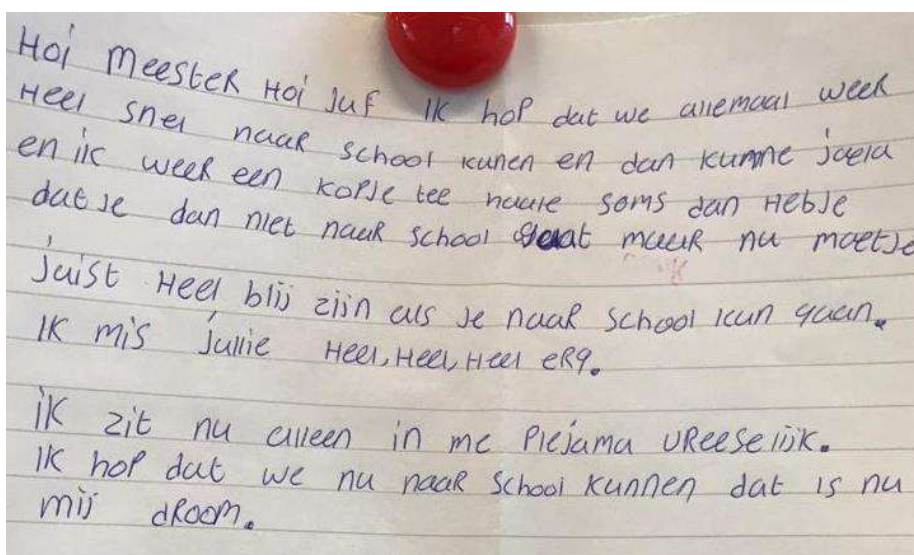 Hoi meester Hoi juf ik hop dat we allemaal weer
Heel snel naar school kunen en dan kunne joela
en ik weer een kopje tee haale soms dan Hebje
dat je dan niet naar school gaat maar nu moetje
juist Heel blij zijn als je naar school kan gaan.
ik mis jullie Heel, Heel, Heel erg.
ik zit nu alleen in me piejama vreeselijk.
ik hop dat we nu naar school kunnen dat is nu
mij droom.